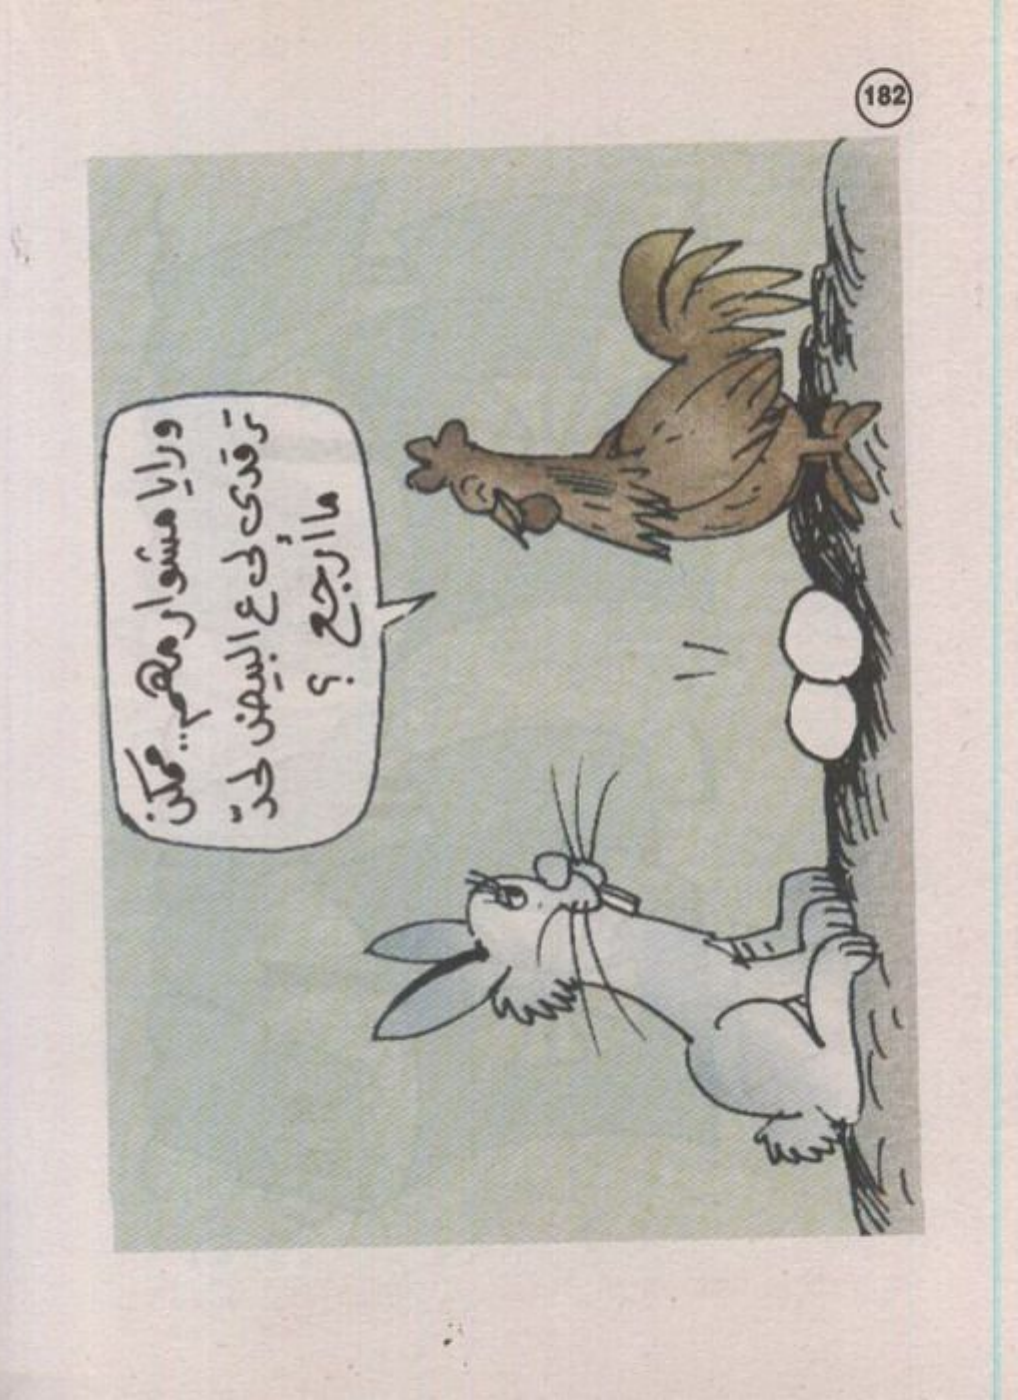 182
ورايا مشوار مهم.. ممكن
ترقدى لى ع البيض لحدّ
ما أرجع ؟